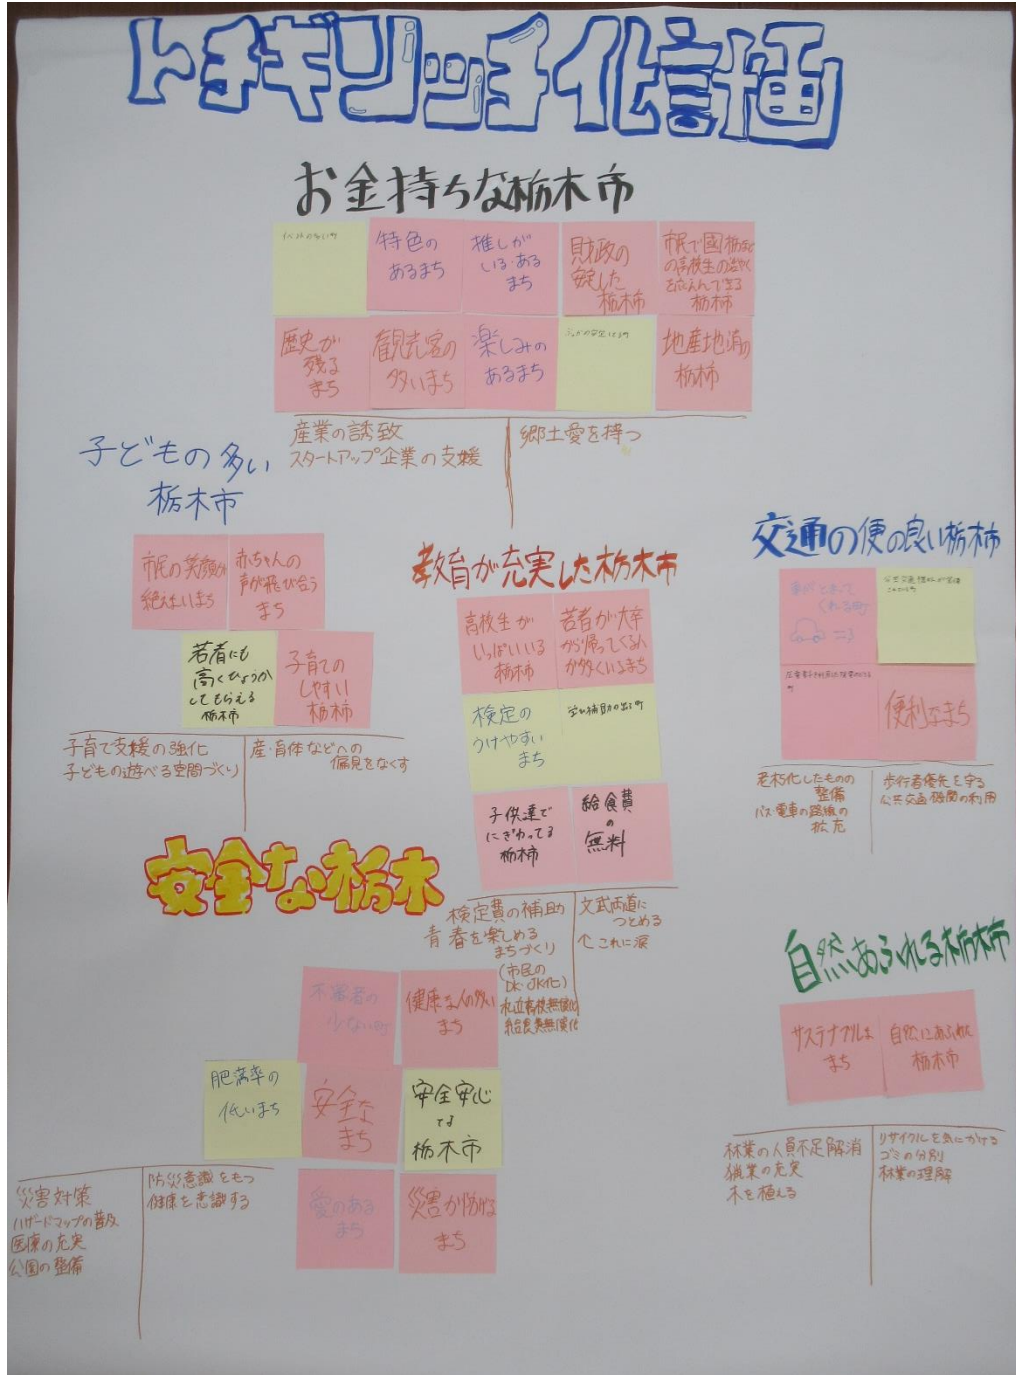 トチギリッチ化計画
お金持ちな栃木市
イベントの多い町
特色の
あるまち
推しが
いる・ある
まち
財政の
安定した
栃木市
市民で國栃など
の高校生の
を応えんできる
栃木市
歴史が
残る
まち
観光客の
多いまち
楽しみの
あるまち
地産地消の
栃木市
産業の誘致
スタートアップ企業の支援
郷土愛を持つ
子どもの多い
栃木市
市民の笑顔が
絶えないまち
赤ちゃんの
声が飛び合う
まち
若者にも
高くひょうか
してもらえる
栃木市
子育ての
しやすい
栃木市
子育て支援の強化
子どもの遊べる空間づくり
産・育休などへの
偏見をなくす
教育が充実した栃木市
高校生が
いっぱいいる
栃木市
若者が大卒
から帰ってくる人
が多くいるまち
検定の
うけやすい
まち
補助の出る町
子供達で
にぎわってる
栃木市
給食費
の
無料
検定費の補助
青春を楽しめる
まちづくり
(市民の
DK・JK化)
市立高校無償化
給食費無償化
文武両道に
つとめる
↑これに涙
交通の便の良い栃木市
車がとまって
くれる町
便利なまち
老朽化したものの
整備
バス・電車の路線の
拡充
歩行者優先を守る
公共交通機関の利用
安全な栃木
不審者の
少ない町
健康な人の多い
まち
肥満率の
低いまち
安全な
まち
安全安心
な
栃木市
愛のある
まち
災害が
まち
災害対策
ハザードマップの普及
医療の充実
公園の整備
防災意識をもつ
健康を意識する
自然あふれる栃木市
サステナブルな
まち
自然にあふれた
栃木市
林業の人員不足解消
猟業の充実
木を植える
リサイクルを気にかける
ゴミの分別
林業の理解